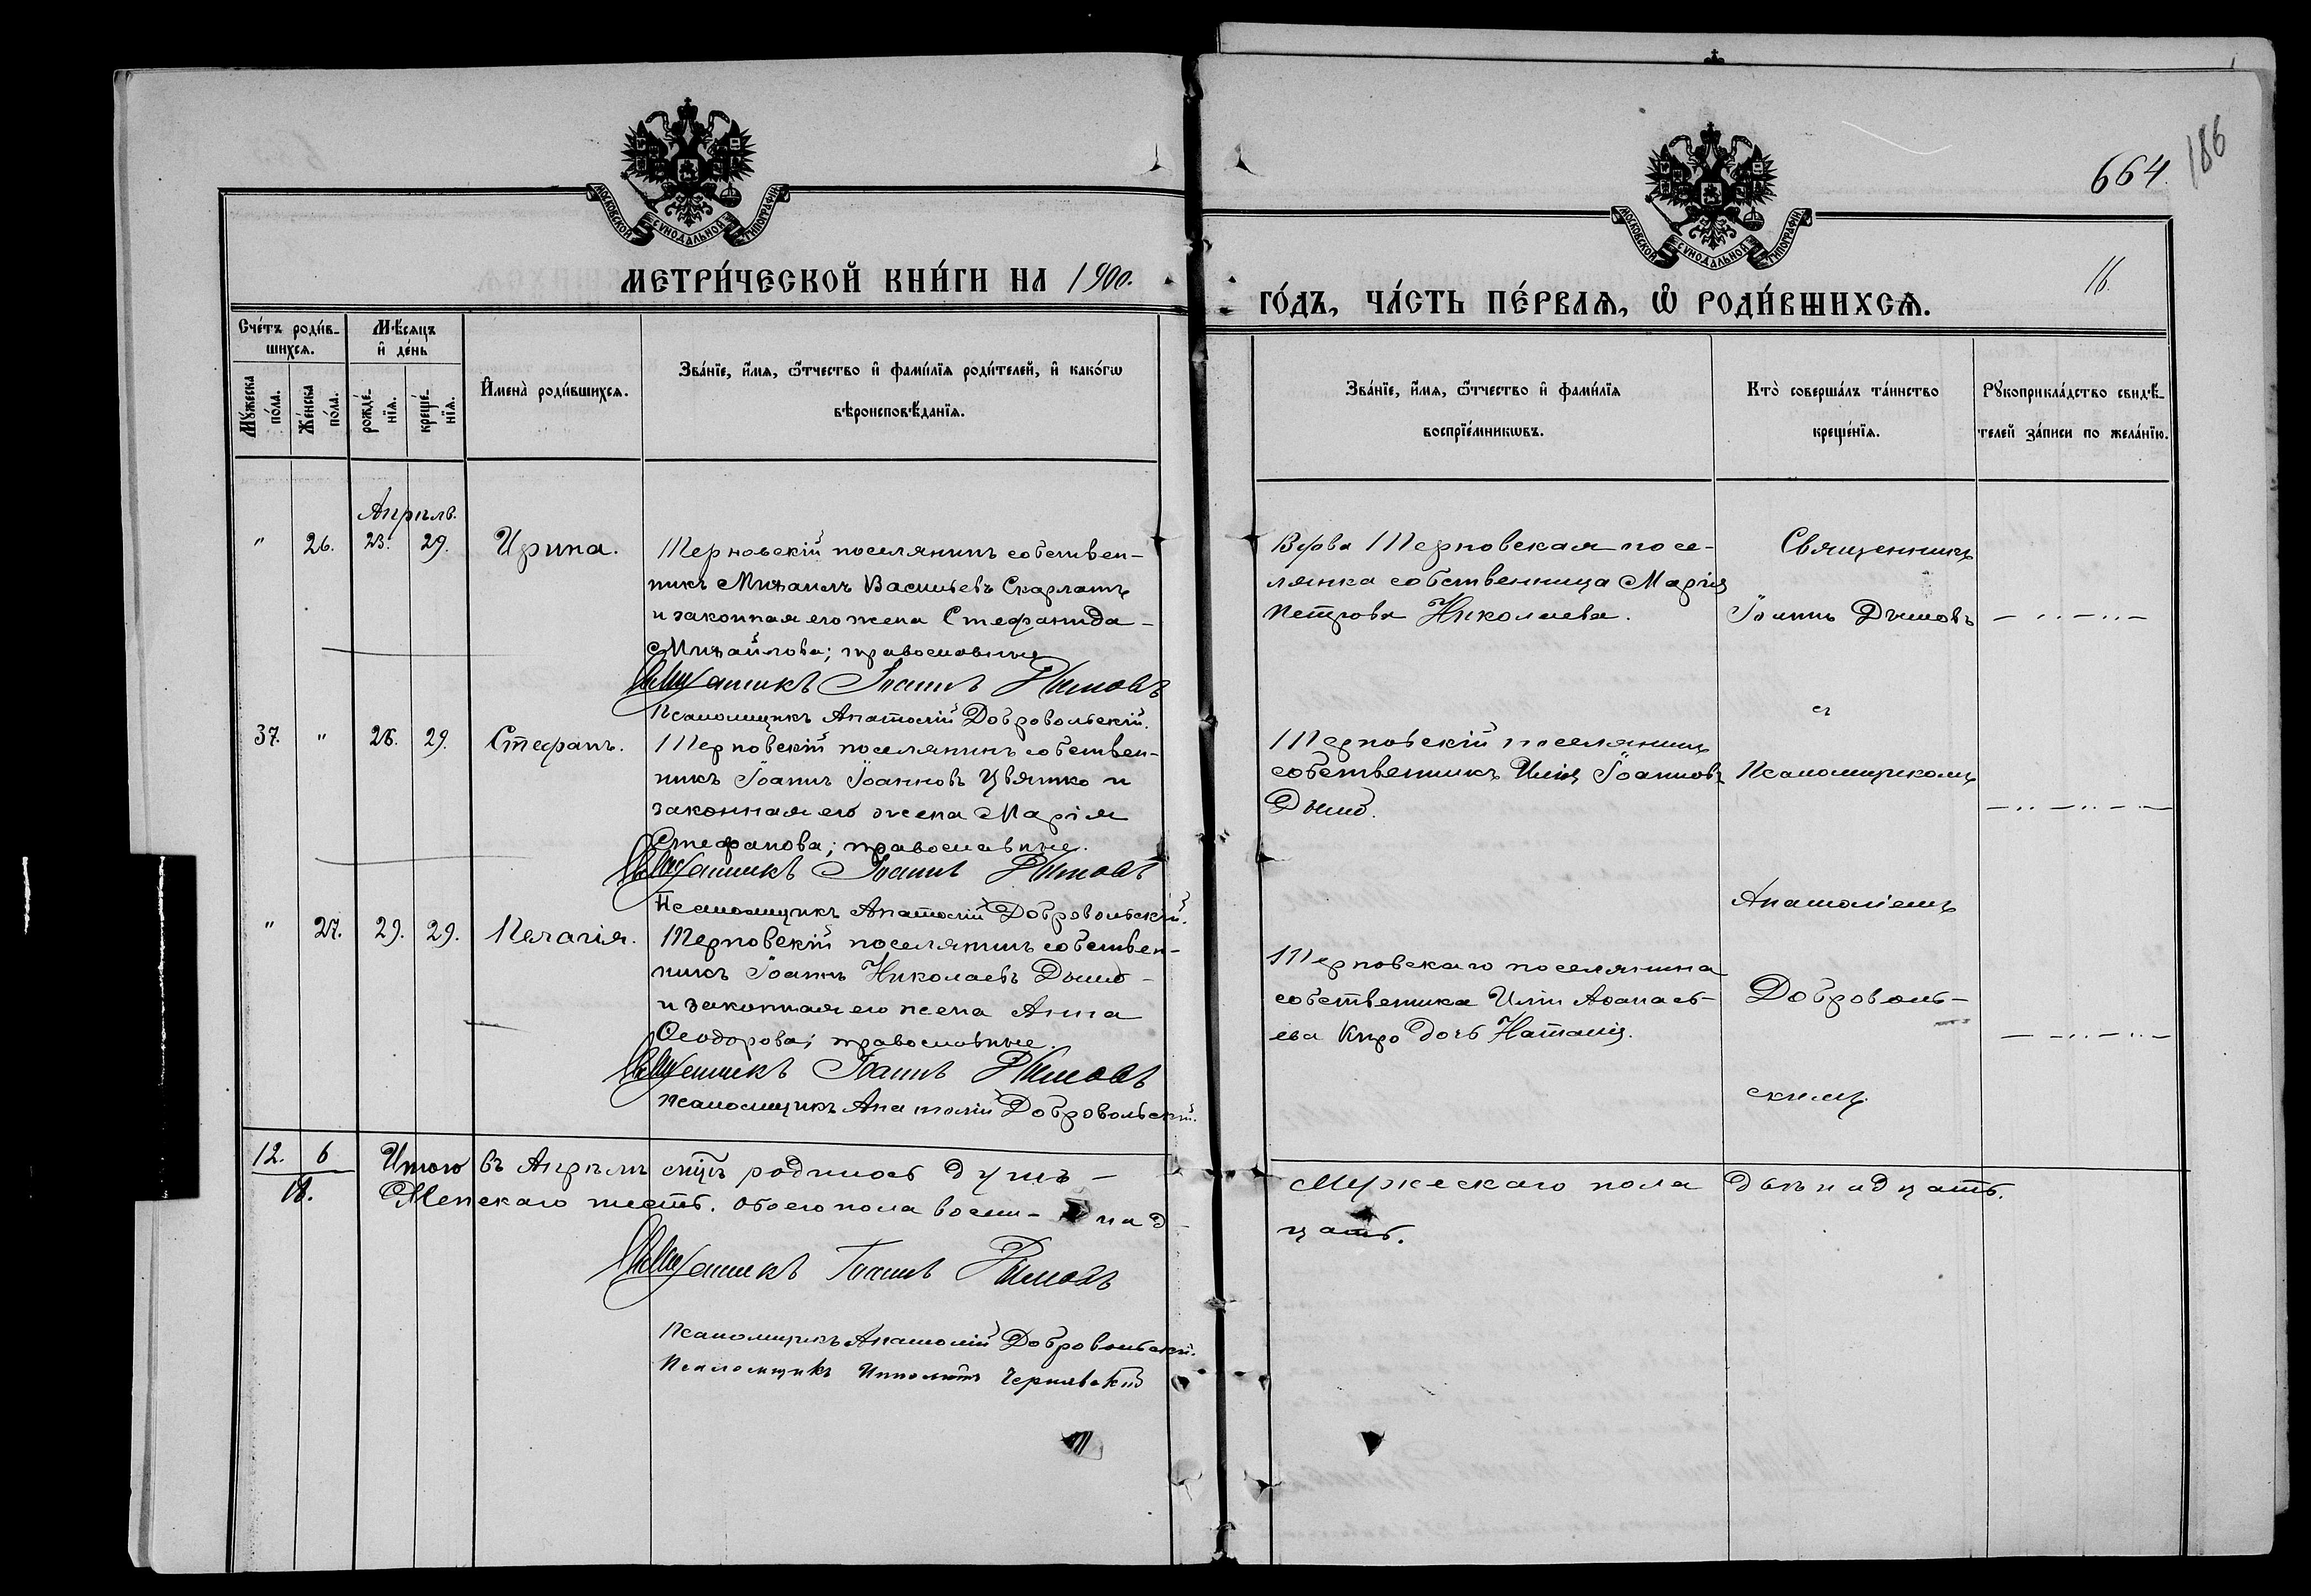 664.
186
МОСКОВСКОЙ СѴНОДАЛЬНОЙ ТИПОГРАФІИ
МОСКОВСКОЙ СѴНОДАЛЬНОЙ ТИПОГРАФІИ
МЕТРИ́ЧЕСКОЙ КНИ́ГИ НА 1900.
ГО́ДЪ, ЧА́СТЬ ПЕ́РВАѦ, Ѡ҆ РОДИ́ВШИХСѦ.
16.
Сче́тъ роди́в-
шихсѧ.
Мꙋ́жеска
по́ла.
Же́нска
по́ла.
Мѣ́сѧцъ
и҆ де́нь
рожде́-
нїѧ.
креще́-
нїѧ.
И҆мена̀ роди́вшихсѧ.
Зва́нїе, и҆́мѧ, ѻ҆́тчество и҆ фами́лїѧ роди́телей, и҆ како́гѡ
вѣроисповѣ́данїѧ.
Зва́нїе, и҆́мѧ, ѻ҆́тчество и҆ фами́лїѧ
воспрїе́мникѡвъ.
Кто̀ соверша́лъ та́инство
креще́нїѧ.
Рꙋкоприкла́дство свидѣ́-
телей за́писи по жела́нїю.
Апрѣль.
" 26. 23. 29. Ирина.
Терновскій поселянинъ собствен-
никъ Михаилъ Васильевъ Скарлатъ
и законная его жена Стефанида
Михайлова; православные
Священникъ Іоаннъ Дымовъ
Псаломщикъ Анатолій Добровольскій.
Терновская посе-
лянка собственница Марія
Петрова Николаева.
Священникъ
Іоаннъ Дымовъ
37. " 28. 29. Стефанъ.
Терновскій поселянинъ собствен-
никъ Іоаннъ Іоанновъ Цвятко и
законная его жена Марія
Стефанова; православные.
Священникъ Іоаннъ Дымовъ
Псаломщикъ Анатолій Добровольскій.
Терновскій поселянинъ
собственникъ Илія Іоанновъ
Дымо.
съ
Псаломщикомъ
Анатоліемъ
Доброволь-
скимъ.
" 27. 29. 29. Пелагія.
Терновскій поселянинъ собствен-
никъ Іоаннъ Николаевъ Дымо
и законная его жена Анна
Ѳеодорова; православные.
Священникъ Іоаннъ Дымовъ
Псаломщикъ Анатолій Добровольскій.
Терновскаго поселянина
собственика Иліи Аѳанась-
ева Киро дочь Наталія.
12. 6
18.
Итого въ Апрѣлѣ мцѣ родилось душъ
Мужескаго пола двѣнадцать.
Женскаго шесть. Обоего пола восем- над-
цать.
Священникъ Іоаннъ Дымовъ
Псаломщикъ Анатолій Добровольскій.
Псаломщикъ Ипполитъ Чернявскій